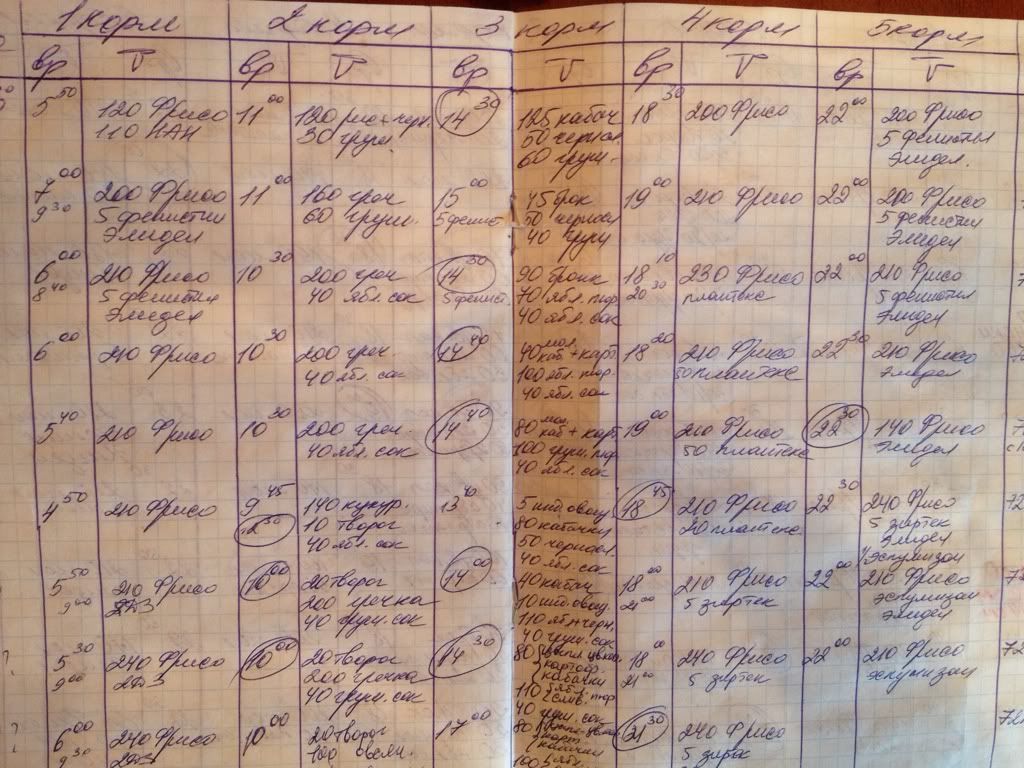 1 корм 2 корм 3 корм 4 корм 5 корм
вр V вр V вр V вр V вр V
5 50 120 Фрисо 11 00 120 рис+черн. 14 30 125 кабач 18 30 200 Фрисо 22 00 200 Фрисо
110 НАН 30 груш. 50 чернос. 5 фенистил
60 груш. Элидел.
7 00 200 Фрисо 11 00 160 греч 15 00 45 брок 19 00 210 Фрисо 22 00 200 Фрисо
9 30 5 фенистил 60 груш. 5 фенист. 50 чернос 5 фенистил
Элидел 40 груш Элидел
6 00 210 Фрисо 10 30 200 греч 14 30 90 брокк 18 10 230 Фрисо 22 00 210 Фрисо
8 40 5 фенистил 40 ябл. сок 5 фенист. 70 ябл. пюр 20 30 плантекс 5 фенистил
Элидел 40 ябл. сок Элидел
6 00 210 Фрисо 10 30 200 греч. 14 40 40 мол. каб + карт 18 20 210 Фрисо 22 30 210 Фрисо
40 ябл. сок 100 ябл. пюр 50 плантекс Элидел
40 ябл. сок
5 40 210 Фрисо 10 30 200 греч. 14 40 80 мол каб + карт 19 00 210 Фрисо 22 30 140 Фрисо
40 ябл. сок 100 груш. пюр 50 плантекс Элидел
40 ябл. сок
4 50 210 Фрисо 9 45 140 кукур. 13 40 5 инд овощ 18 45 210 Фрисо 22 30 240 Фрисо
10 творог 80 кабачки 20 плантекс 5 зиртек
40 ябл. сок 50 чернос. Элидел
40 ябл. сок Эспумизан
5 50 210 Фрисо 10 00 20 творог 14 00 40 кабач 18 00 210 Фрисо 22 00 210 Фрисо
9 00 200 гречка 10 инд. овощ 21 00 5 зиртек эспумизан
40 груш. сок 110 ябл+черн. Элидел
40 груш. сок
5 30 240 Фрисо 10 00 20 творог 14 30 80 18 00 240 Фрисо 22 00 210 Фрисо
9 00 200 гречка картоф 21 00 5 зиртек эспумизан
40 груш. сок кабачки
110 пюр
40 груш. сок
6 00 240 Фрисо 10 00 20 творог 17 00 80 21 30 240 Фрисо
9 30 100 овсян. карт 5 зиртек
кабачки
100 ябл